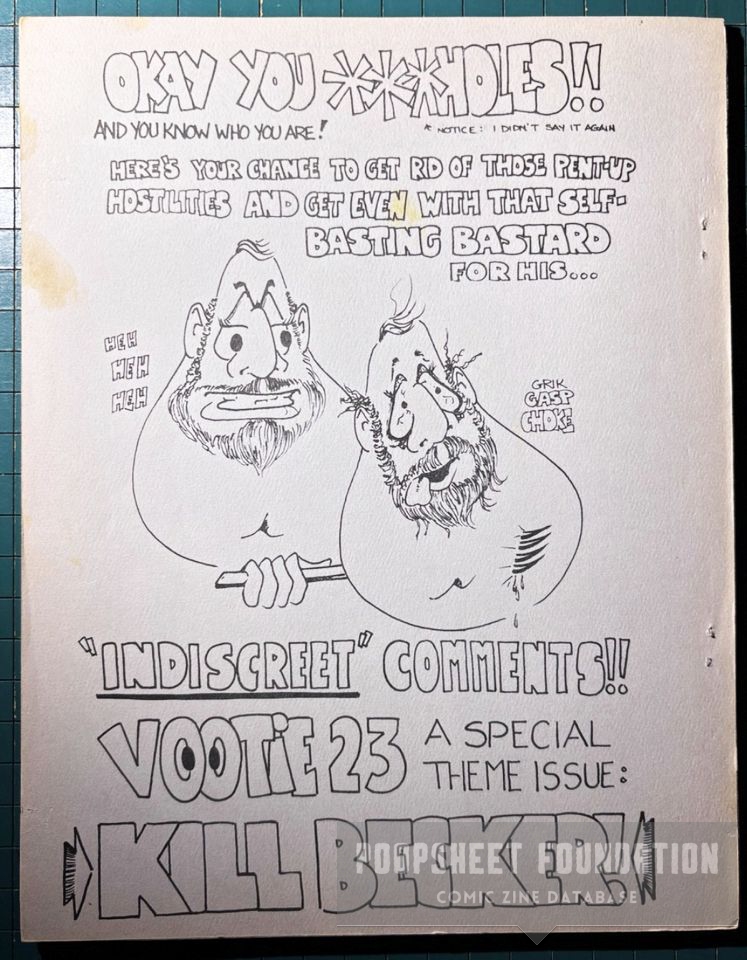 OKAY YOU ***HOLES!!
AND YOU KNOW WHO YOU ARE!
* NOTICE: I DIDN'T SAY IT AGAIN
HERE'S YOUR CHANCE TO GET RID OF THOSE PENT-UP
HOSTILITIES AND GET EVEN WITH THAT SELF-
BASTING BASTARD
FOR HIS...
HEH
HEH
HEH
GRIK
GASP
CHOKE
"INDISCREET" COMMENTS!!
VOOTIE 23
A SPECIAL
THEME ISSUE:
KILL BECKER!
POOPSHEET FOUNDATION
COMIC ZINE DATABASE